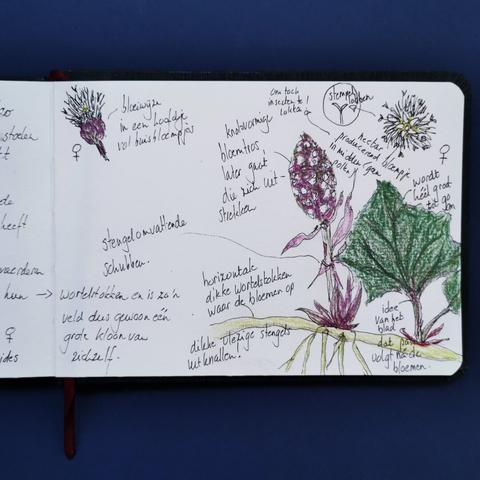 bloeiwijze
in een hoofdje
vol buisbloempjes
♀
om toch
insecten te
lokken
stempel
lobben
nectar
producerend bloempje
in midden (geen
pollen)
♀
knotsvormige
bloemtros
later gaat
die zich uit-
strekken
wordt
héél groot
tot 90
cm
stengelomvattende
schubben.
horizontale
dikke wortelstokken
waar de bloemen op
dikke vlezige stengels
uitknallen!
idee
van het
blad
dat pas
volgt na de
bloemen.
heeft
hun → wortelstokken en is zo'n
veld dus gewoon één
grote kloon van
zichzelf.
♀
ides